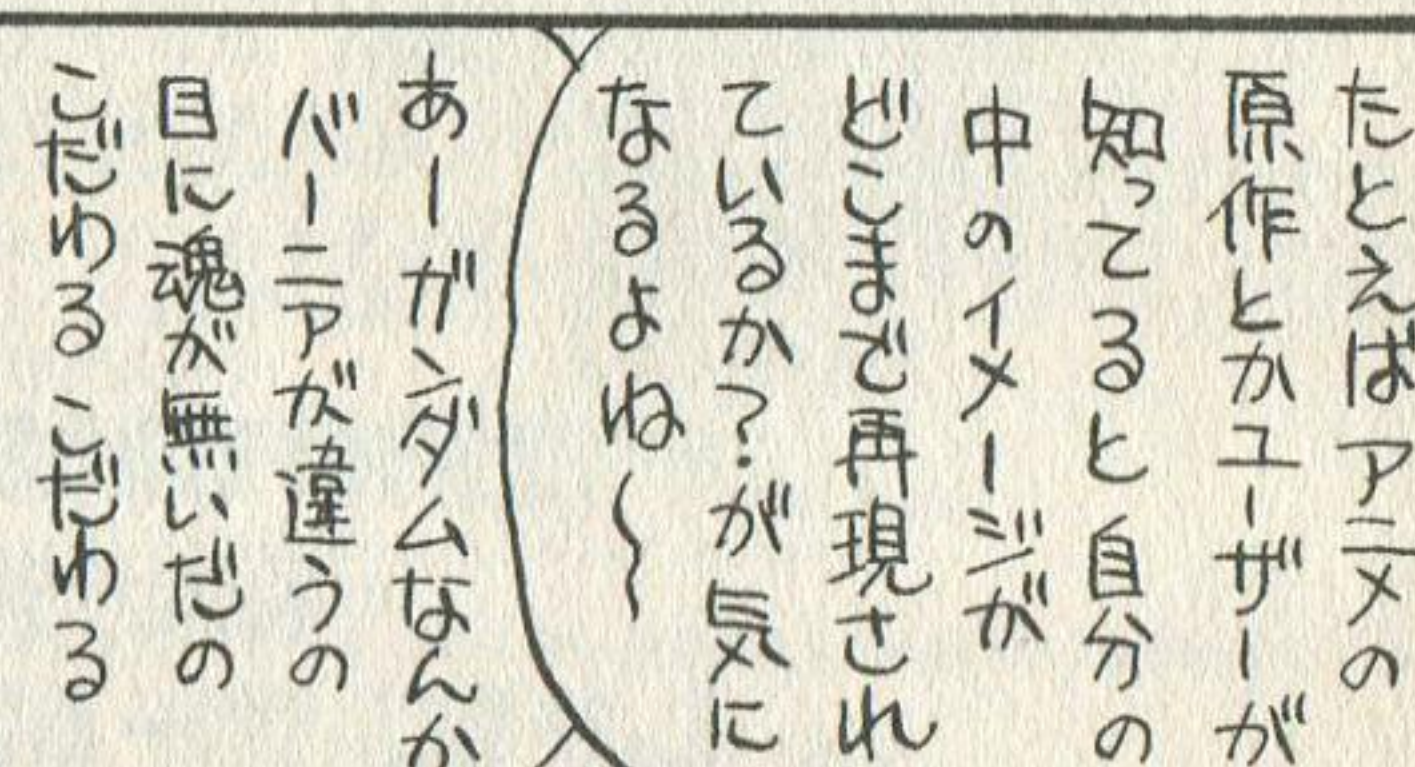 たとえばアニメの
原作とかユーザーが
知ってると自分の
中のイメージが
どこまで再現され
ているか？が気に
なるよね〜
あーガンダムなんか
バーニアが違うの
目に魂が無いだの
こだわるこだわる